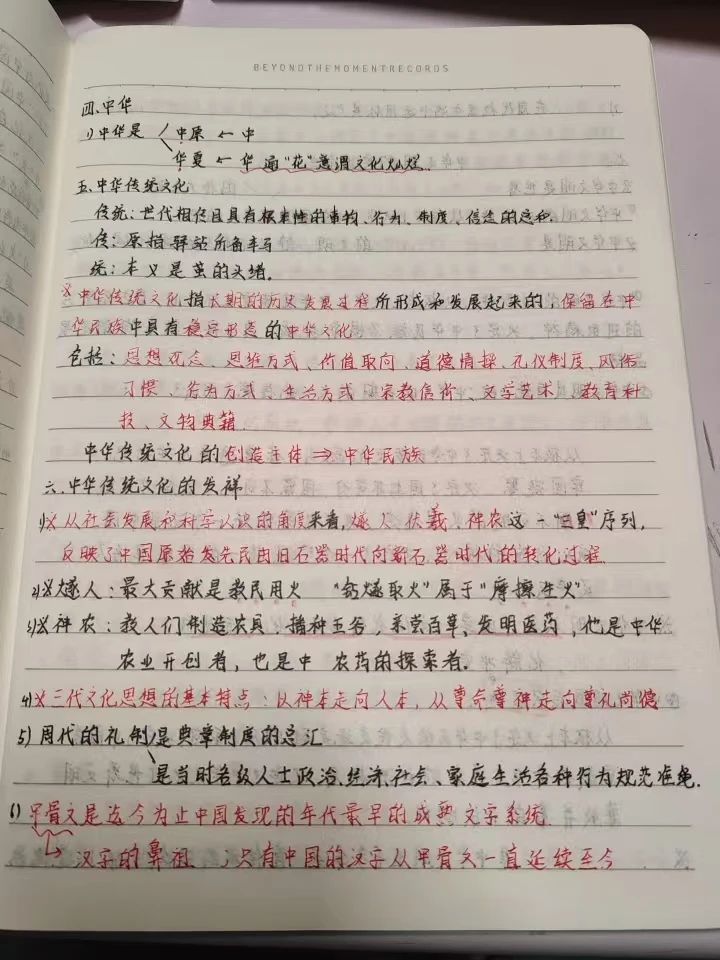 BEYONDTHEMOMENTRECORDS
四.中华
1)中华是 中原 ← 中
华夏 ← 华 通“花”意谓文化灿烂.
五.中华传统文化
传统:世代相传且具有根本性的事物、行为、制度、信念的总和.
传:原指驿站所备车马
统:本义是茧的头绪.
※中华传统文化指长期的历史发展过程所形成和发展起来的,保留在中
华民族中具有稳定形态的中华文化
包括:思想观念、思维方式、价值取向、道德情操、礼仪制度、风俗
习惯、行为方式、生活方式、宗教信仰、文学艺术、教育科
技、文物典籍
中华传统文化的创造主体 ⇒ 中华民族
六.中华传统文化的发祥
1)※从社会发展和科学认识的角度来看,燧人、伏羲、神农这一“三皇”序列,
反映了中国原始先民由旧石器时代向新石器时代的转化过程.
2)※燧人:最大贡献是教民用火 “钻燧取火”属于“摩擦生火”
3)※神农:教人们制造农具,播种五谷,亲尝百草,发明医药,他是中华
农业开创者,也是中 农药的探索者.
4)※三代文化思想的基本特点:从神本走向人本,从尊命尊神走向尊礼尚德
5)周代的礼制 是典章制度的总汇
是当时各级人士政治、经济、社会、家庭生活各种行为规范准绳.
6)甲骨文是迄今为止中国发现的年代最早的成熟文字系统.
↳ 汉字的鼻祖 ;只有中国的汉字从甲骨文一直延续至今